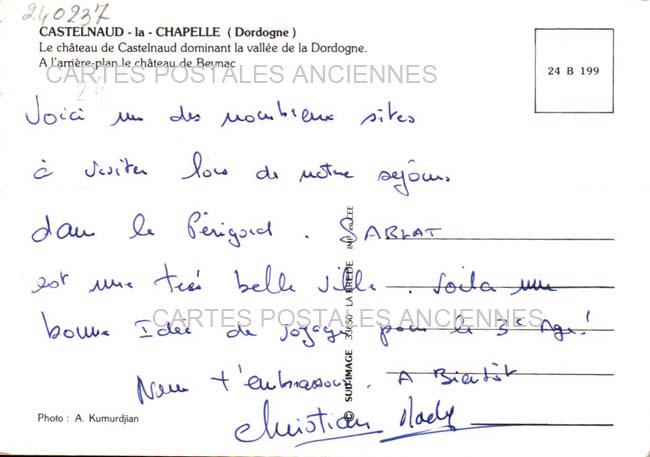 240237
CASTELNAUD - la - CHAPELLE ( Dordogne )
Le château de Castelnaud dominant la vallée de la Dordogne.
A l'arrière-plan le château de Beynac
CARTES POSTALES ANCIENNES
24 B 199
24
Voici un des nombreux sites
à visiter lors de notre séjour
dans le Périgord. SARLAT
est une très belle ville. Voila une
bonne Idée de voyage pour le 3e Age!
CARTES POSTALES ANCIENNES
Nous t'embrassons. A Bientôt
Christian
Photo : A. Kumurdjian
© SUD-IMAGE 33650 LA BREDE